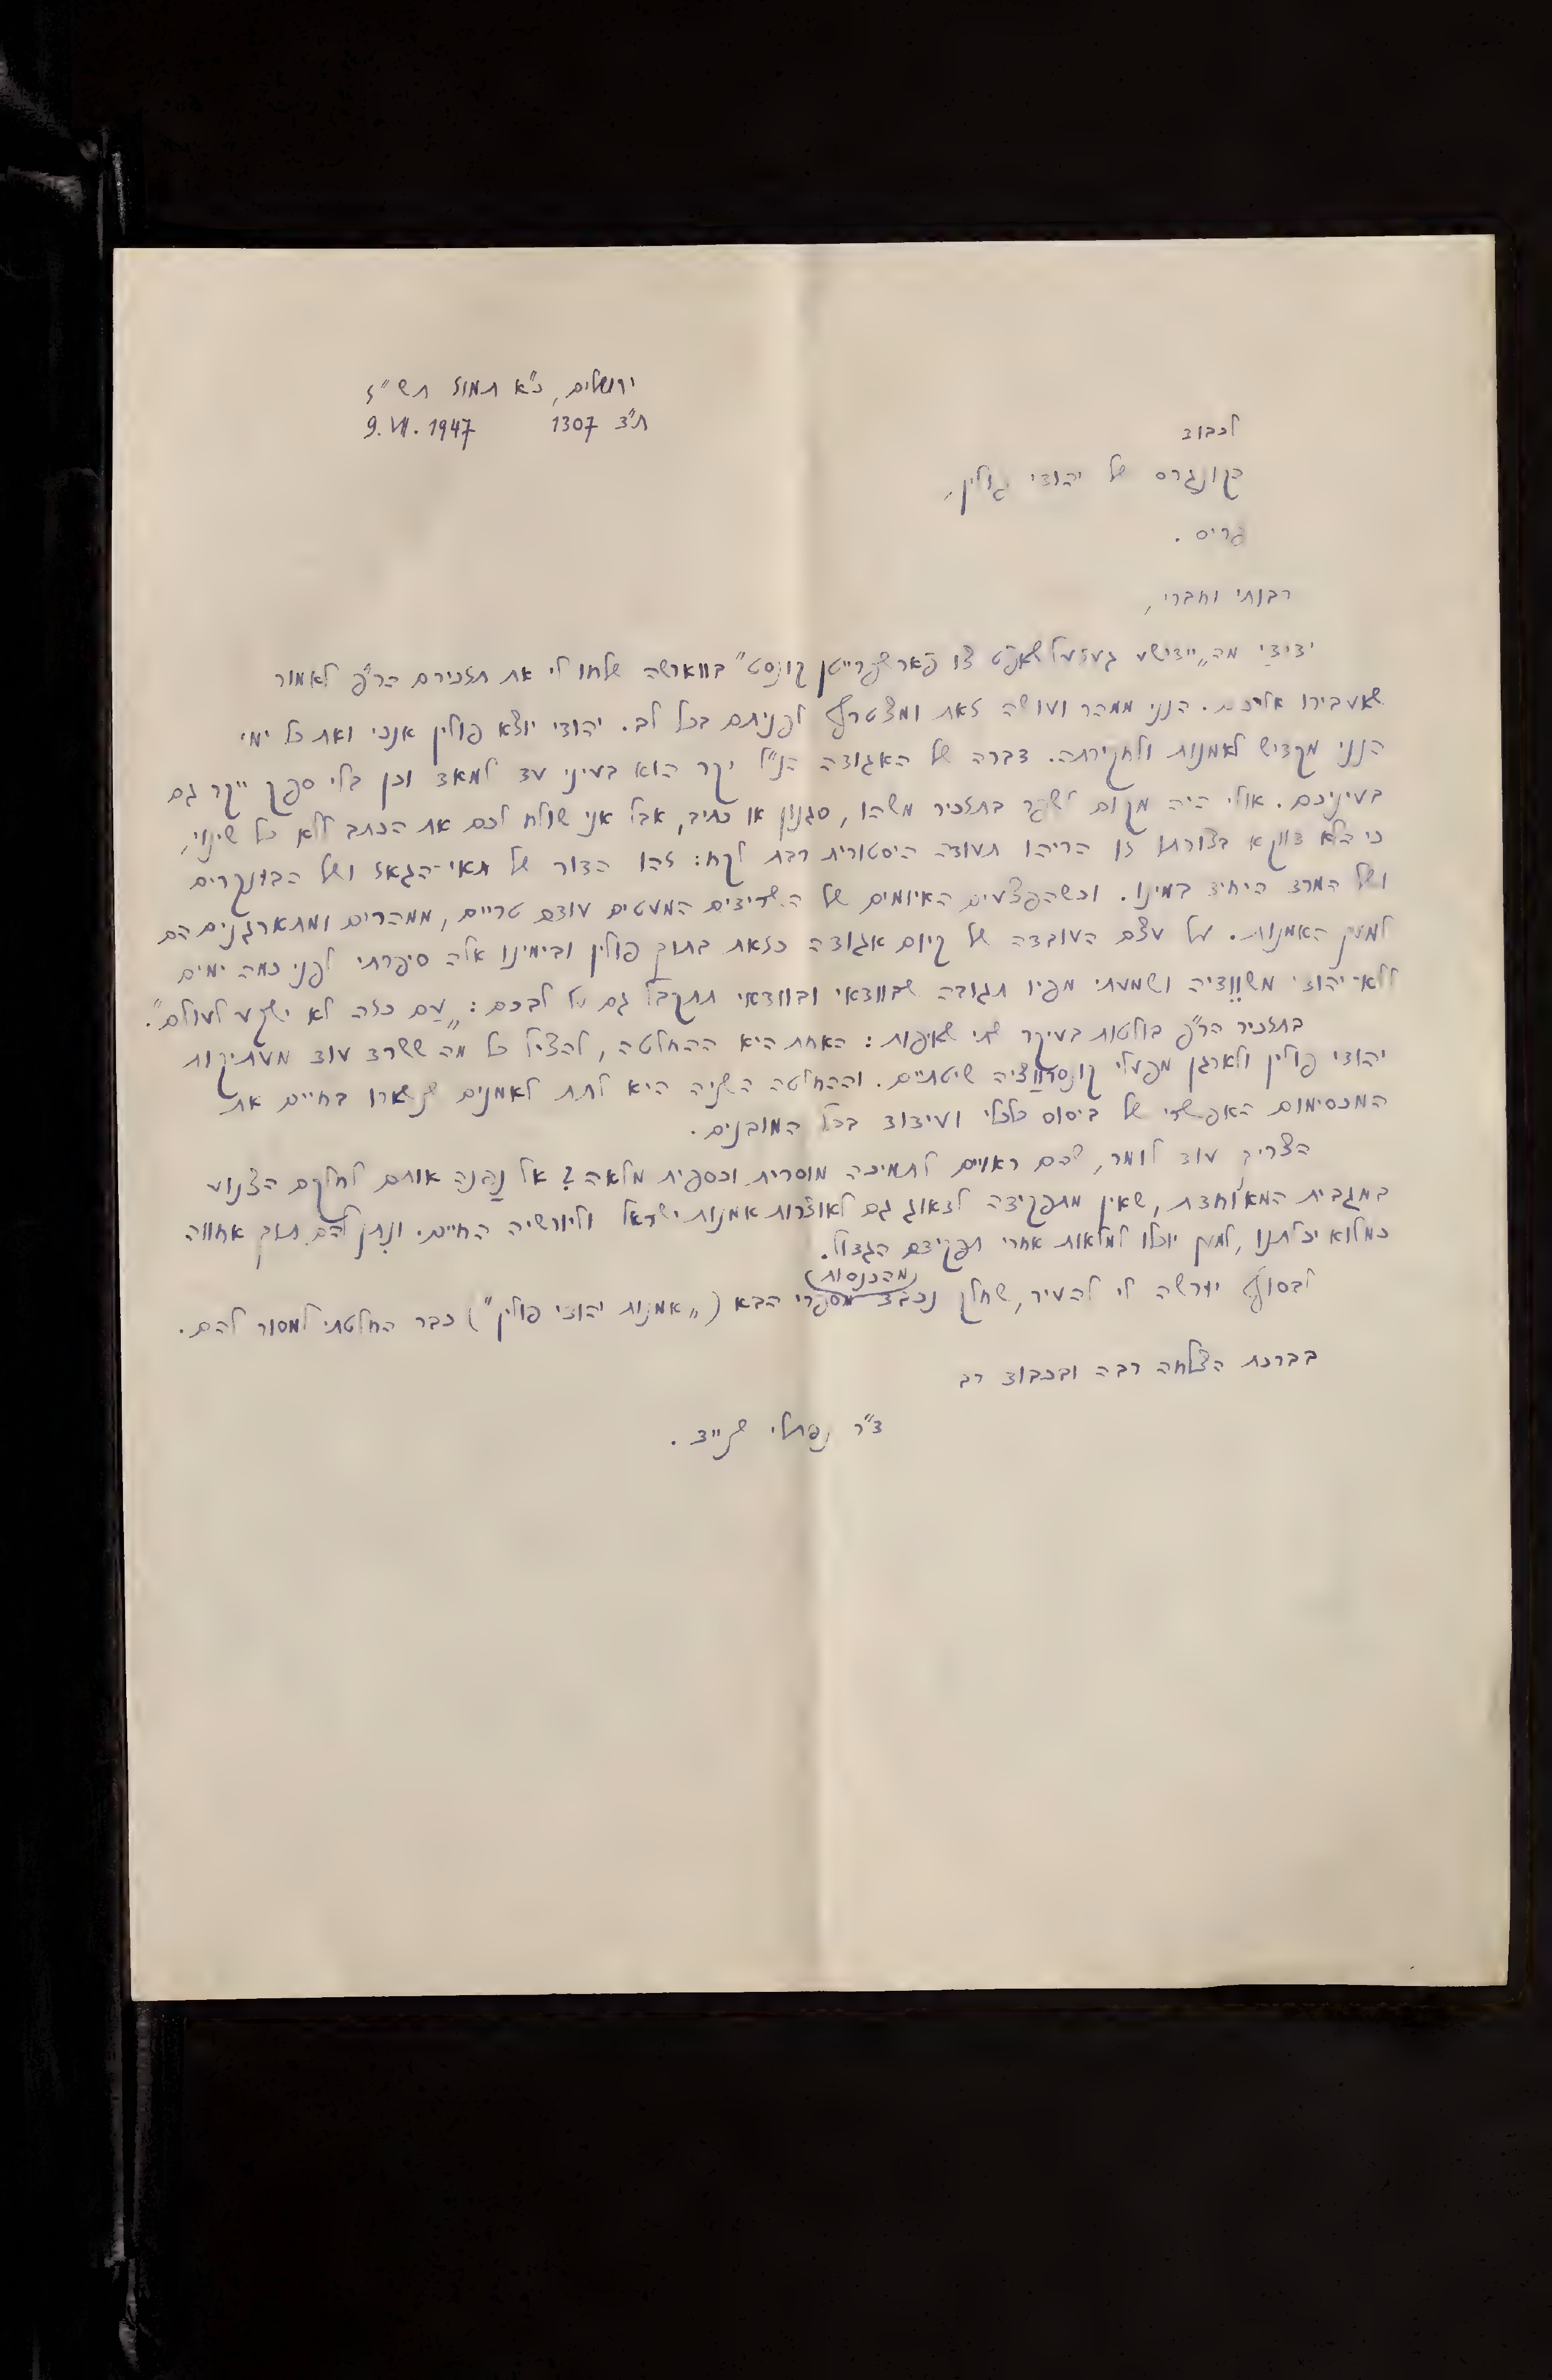 ירושלים, כ"א תמוז תש"ז
ת"ד 1307 9.VII.1947
לכבוד
קונגרס של יהודי פולין,
פריס.
רבותי וחברי,
ידידַי מה„יידישע געזעלשאַפֿט צו פֿארשפּרייטן קונסט" בווארשה שלחו לי את תזכירם הר"פ לאמור
שאעבירו אליכם. הנני ממהר ועושה זאת ומצטרף לפניתם בכל לב. יהודי יוצא פולין אנכי ואת כל ימי
הנני מקדיש לאמנות ולחקירתה. דברה של האגודה הנ"ל יקר הוא בעיני עד למאד וכן בלי ספק ייקר גם
בעיניכם. אולי היה מקום לשפר בתזכיר משהו, סגנון או כתיב, אבל אני שולח לכם את הכתב ללא כל שינוי,
כי הלא דווקא בצורתו זו הריהו תעודה היסטורית רבת לקח: זהו הדור של תאי-הגאז ושל הבונקרים
ושל המרד היחיד במינו. וכשהפצעים האיומים של השרידים המעטים עודם טריים, ממהרים ומתארגנים הם
למען האמנות. על עצם העובדה של קיום אגודה כזאת בתוך פולין ובימינו אלה סיפרתי לפני כמה ימים
ללא-יהודי משוודיה ושמעתי מפיו תגובה שבוודאי ובוודאי תתקבל גם על לבכם: „עַם כזה לא ישקע לעולם".
בתזכיר הר"פ בולטות בעיקר שתי שאיפות: האחת היא ההחלטה, להציל כל מה ששרד עוד מעתיקות
יהודי פולין ולארגן מפעלי קונסרוַוציה שיטתיים. וההחלטה השניה היא לתת לאמנים שנשארו בחיים את
המכסימום האפשרי של ביסוס כלכלי ועידוד בכל המובנים.
הצריך עוד לומר, שהם ראויים לתמיכה מוסרית וכספית מלאה? אל נַפנה אותם לחלקם הצנוע
במגבית המאוחדת, שאין מתפקידה לדאוג גם לאוצרות אמנות ישראל וליורשיה החיים. ונתן להם מתוך אחווה
כמלוא יכלתנו, למען יוכלו למלאות אחרי תפקידם הגדול.
לבסוף יורשה לי להעיר, שחלק נכבד (מהכנסות) מספרי הבא („אמנות יהודי פולין") כבר החלטתי למסור להם.
בברכת הצלחה רבה ובכבוד רב
ד"ר נפתלי שנייד.